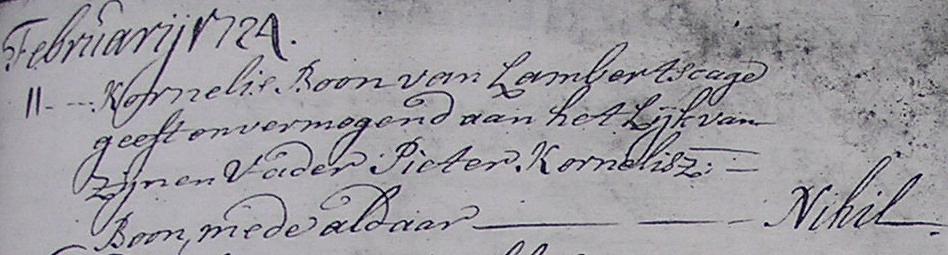 Februarij 1724.
11 - - - Kornelis Boon van Lambertscage
geeft onvermogend aan het Lijk van
zijnen Vader Pieter Kornelisz: —
Boon, mede aldaar — — — Nihil.